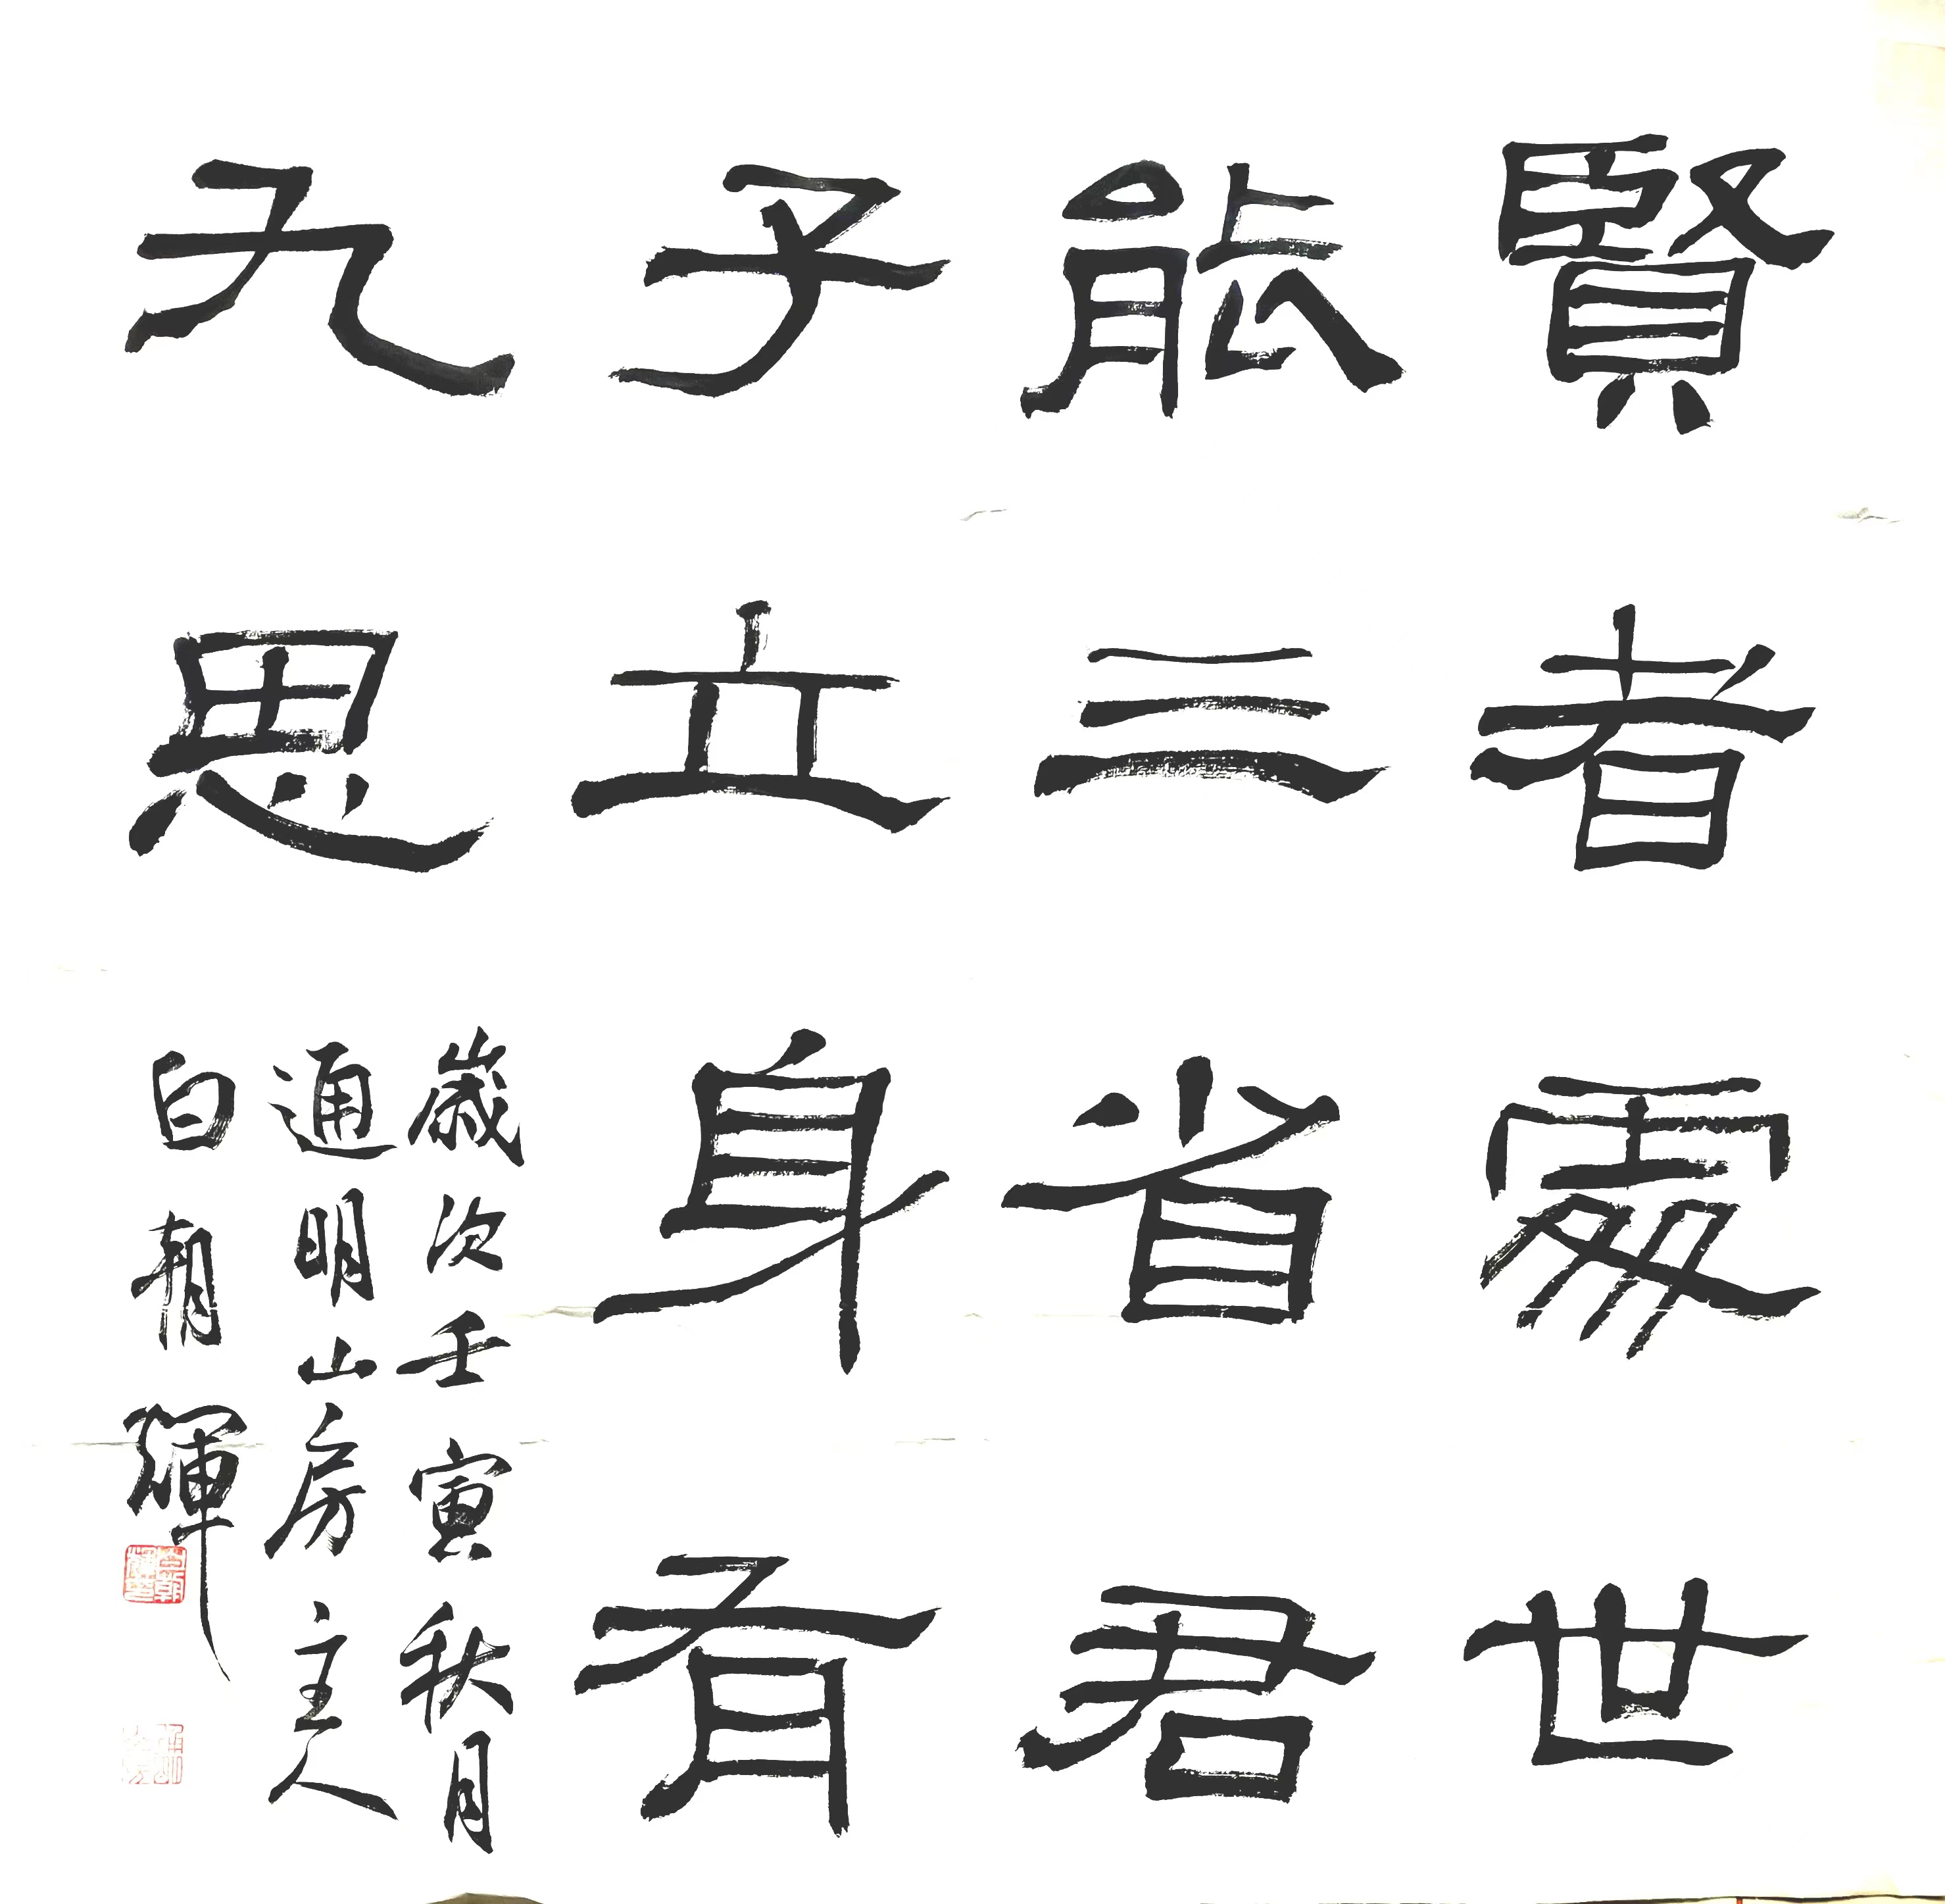 賢者處世
能三省君
子立身有
九思
歲次壬寅秋月
通明山房主人
白朝輝